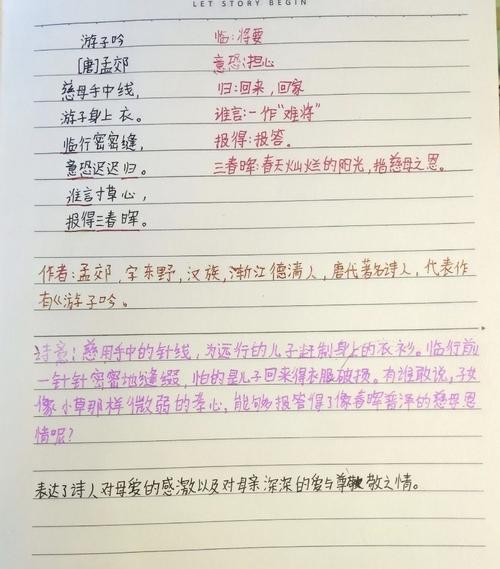 LET STORY BEGIN
游子吟 临:将要
[唐]孟郊 意恐:担心
慈母手中线, 归:回来,回家
游子身上衣。 谁言:一作“难将”
临行密密缝, 报得:报答。
意恐迟迟归。 三春晖:春天灿烂的阳光,指慈母之恩。
谁言寸草心,
报得三春晖。
作者:孟郊,字东野,汉族,浙江德清人,唐代著名诗人,代表作
有《游子吟。
诗意:慈用手中的针线,为远行的儿子赶制身上的衣衫。临行前
一针针密密地缝缀,怕的是儿子回来得衣服破损。有谁敢说,子女
像小草那样微弱的孝心,能够报答得了像春晖普泽的慈母恩
情呢?
表达了诗人对母爱的感激以及对母亲深深的爱与尊敬之情。